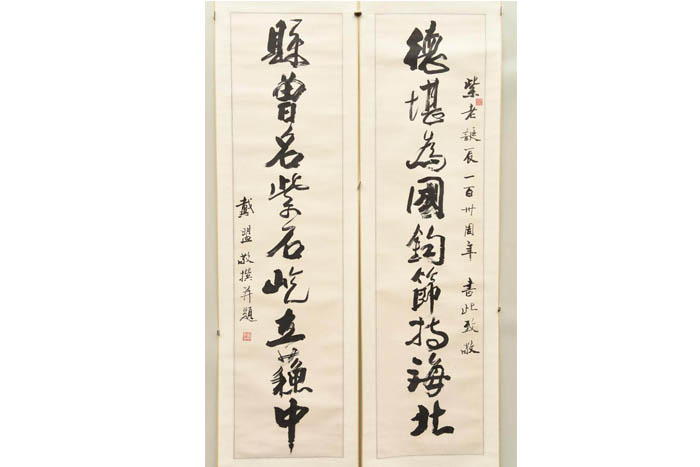 德堪為國鈞節持海北
紫老誕辰一百卅周年 書此致敬
縣曾名紫石屹立蘇中
戴盟敬撰并題